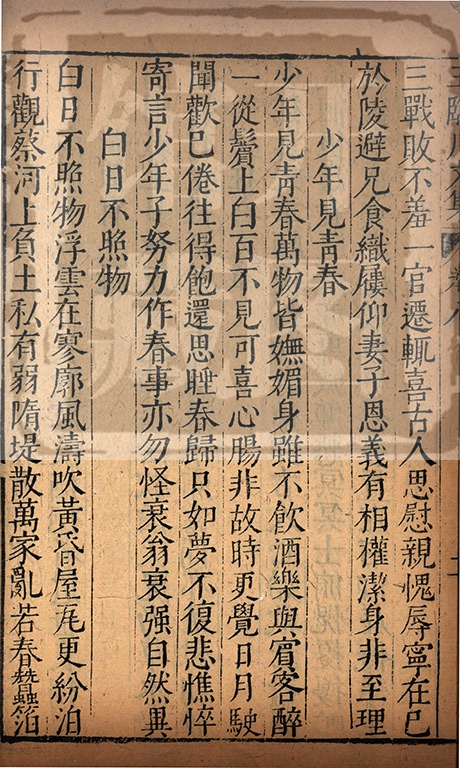 三戰敗不羞一官遷輒喜古人思慰親愧辱寧在已
於陵避兄食織屨仰妻子恩義有相權潔身非至理
少年見青春
少年見青春萬物皆嫵媚身雖不飲酒樂與賓客醉
一從鬢上白百不見可喜心腸非故時更覺日月駛
聞歡已倦往得飽還思睡春歸只如夢不復悲憔悴
寄言少年子努力作春事亦勿怪衰翁衰强自然異
白日不照物
白日不照物浮雲在寥廓風濤吹黃昏屋瓦更紛泊
行觀蔡河上負土私有弱隋堤散萬家亂若春蠶箔